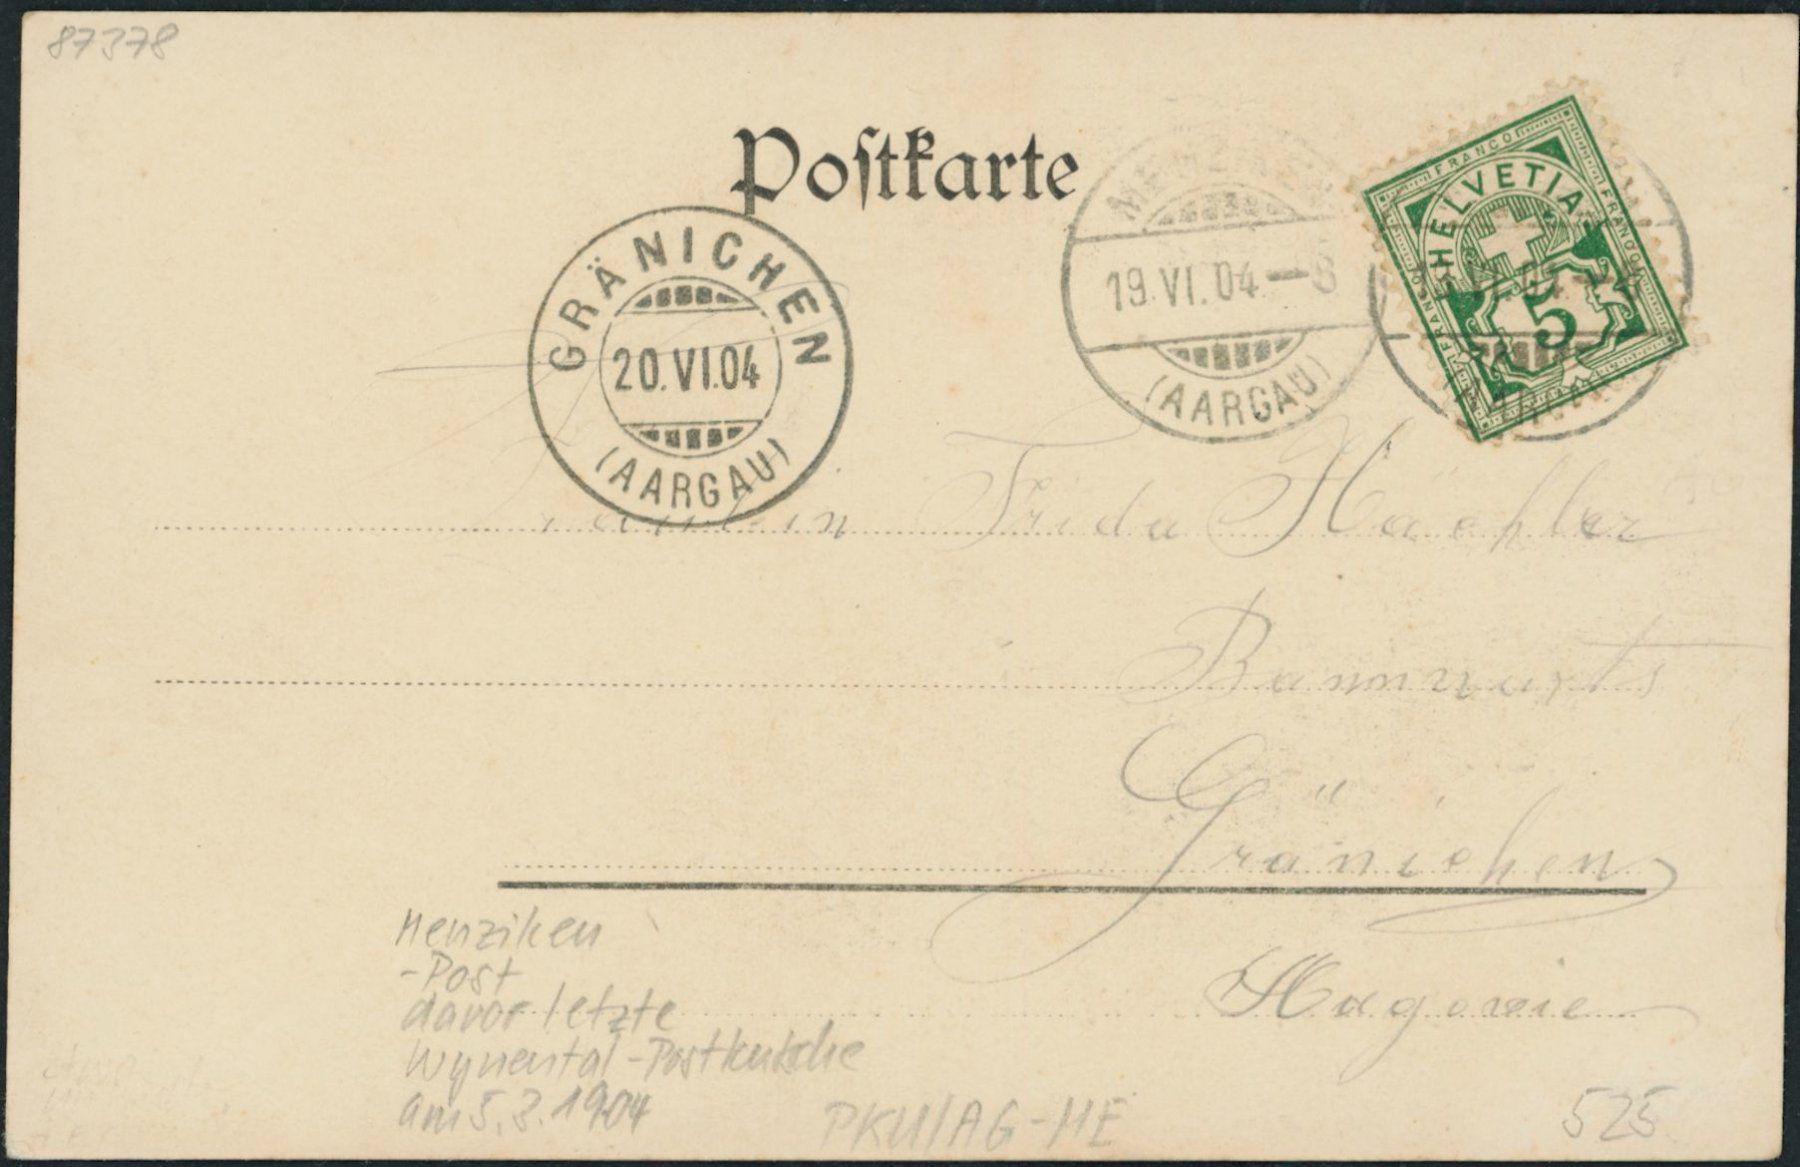 87378
Postkarte
FRANCO
HELVETIA
FRANCO
FRANCO
5
MENZIKEN
19.VI.04-8
(AARGAU)
GRÄNICHEN
20.VI.04
(AARGAU)
Fräulein Frida
Gränichen
Menziken
-Post
davor letzte
Wynental-Postkutsche
am 5.3.1904
PKU/AG-ME
525